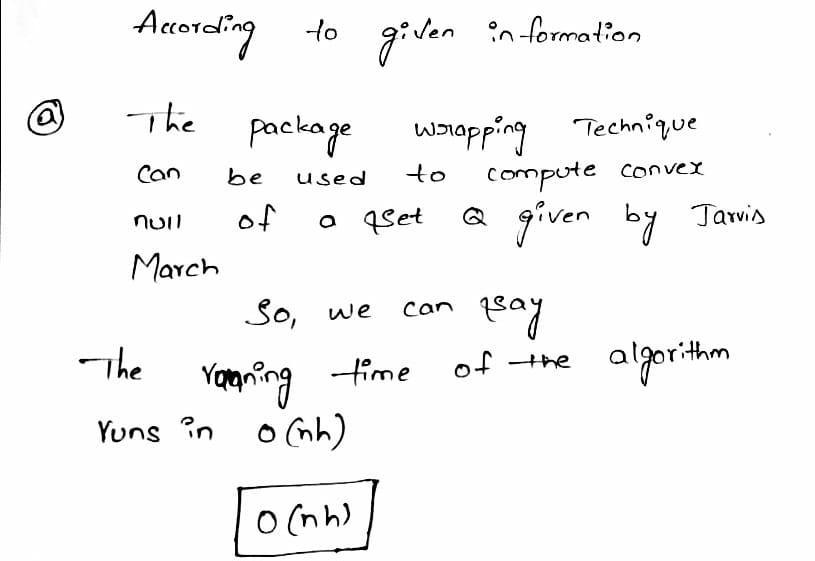 According to given information
ⓐ The package wrapping Technique
Can be used to compute convex
null of a qset Q given by Jarvis
March
So, we can say
The running time of the algorithm
runs in O(nh)
O(nh)